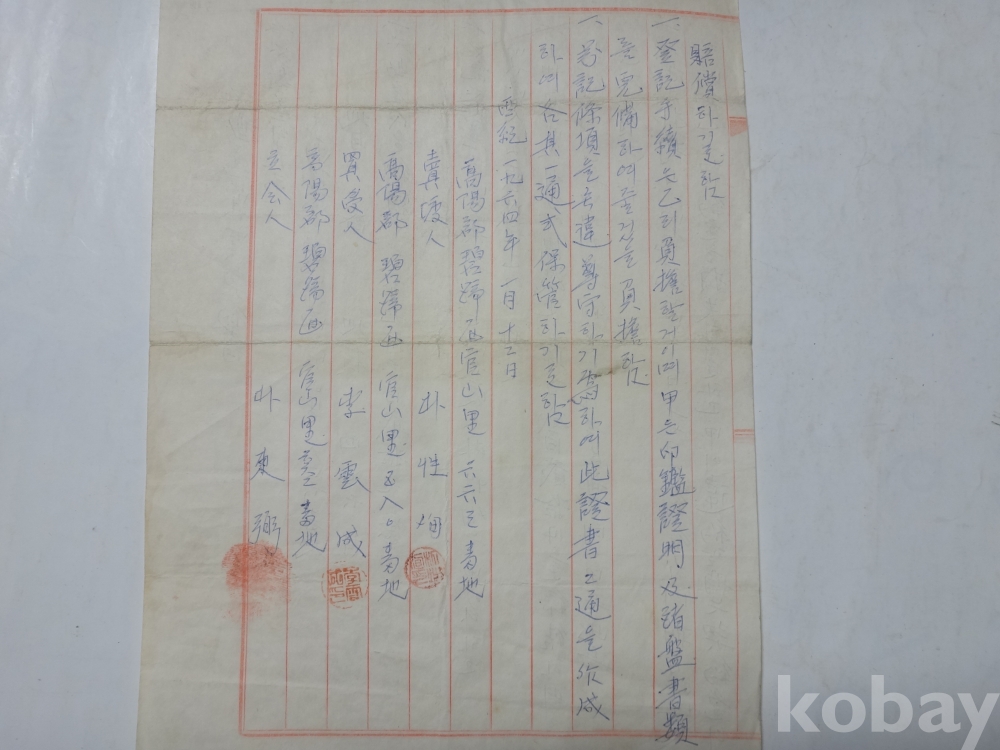 賠償하길 함
一. 登記手續은 乙이 負擔할 거이며 甲은 印鑑證明及諸盤書類
를 完備하여 줄 것을 負擔함
一. 另記條項을 無違 尊守하기 爲하여 此證書 二通을 作成
하여 各其 一通式 保管하기로 함
西紀 一九六四年 一月 十二日
高陽郡 碧蹄面 官山里 六六三 番地
賣渡人 朴性
高陽郡 碧蹄面 官山里 五八〇 番地
買受人 李雲成
高陽郡 碧蹄面 官山里 番地
立会人 朴
kobay